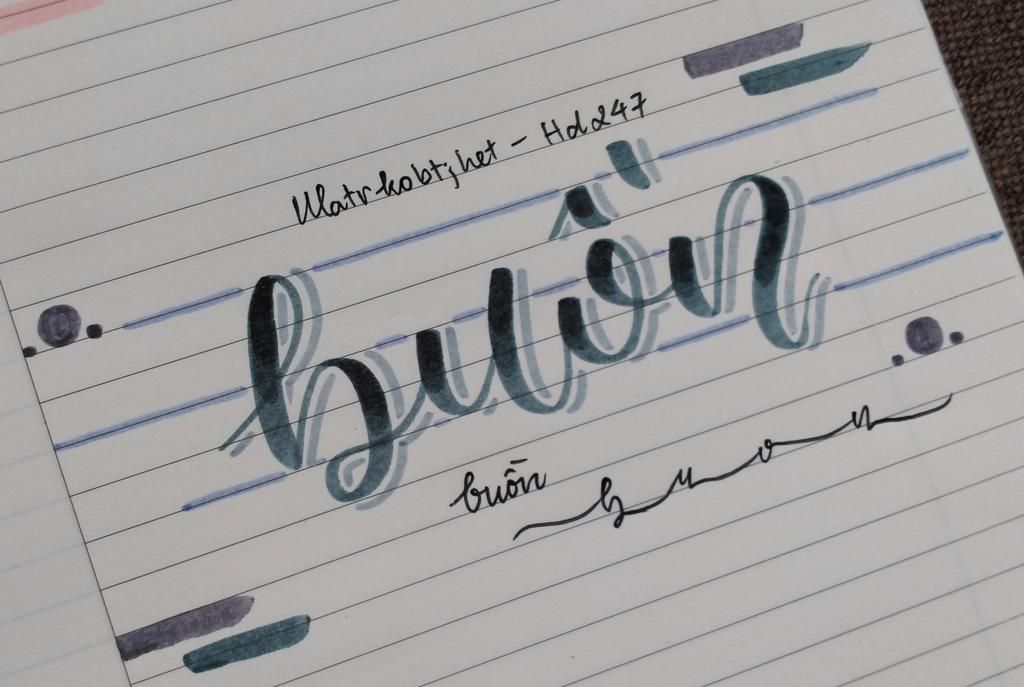 Matrkobtjhet - Hd247
buồn
buồn
buon